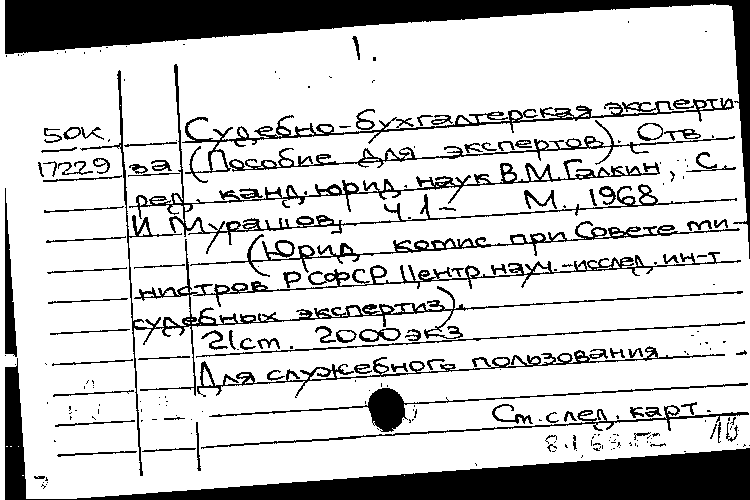 1.
50к. Судебно-бухгалтерская эксперти-
17229 за (Пособие для экспертов). Отв.
ред. канд. юрид. наук В.М. Галкин, С.
И. Мурашов, ч.1- М., 1968
(Юрид. комис. при Совете ми-
нистров РСФСР. Центр. науч.-исслед. ин-т
судебных экспертиз).
21см. 2000экз.
Для служебного пользования.
См. след. карт.
1б